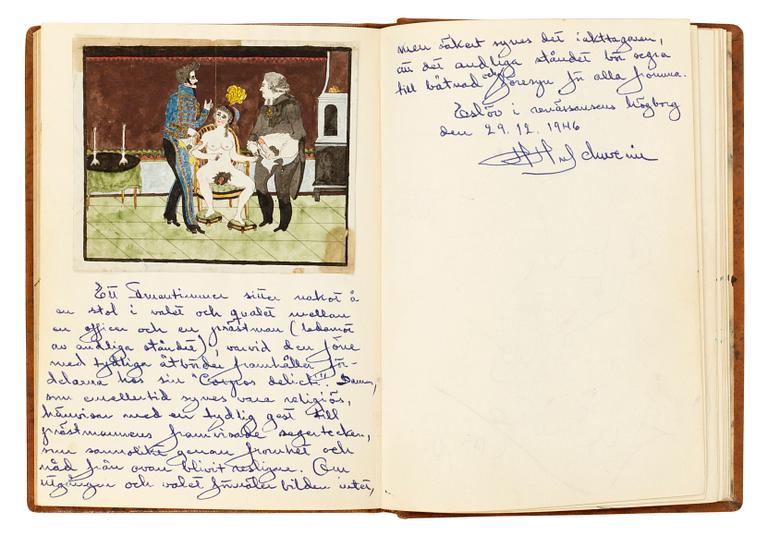 Ett fruntimmer sitter naket å
en stol i valet och qvalet mellan
en officer och en prästman (ledamot
av andliga ståndet), varvid den förre
med tydliga åtbörder framhåller för-
delarna hos sin "Corpus delicti". Damen,
som emellertid synes vara religiös,
hänvisar med en tydlig gest till
prästmannens framvisade segertecken,
som sannolikt genom fromhet och
nåd från ovan blivit
utgången och valet förmäler bilden intet,
men säkert synes det iakttagaren,
att det andliga ståndet bör segra
till båtnad och föresyn för alla fromma.
Eslöv i renässansens högborg
den 29.12.1946